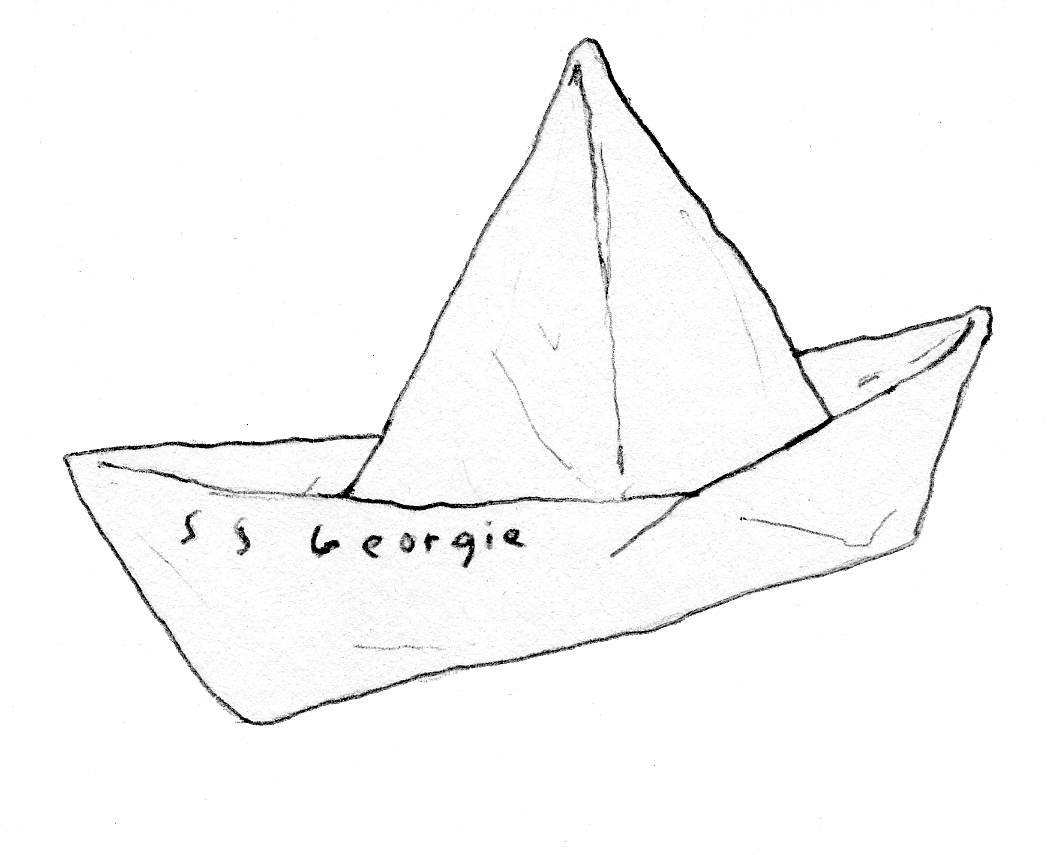 S S Georgie